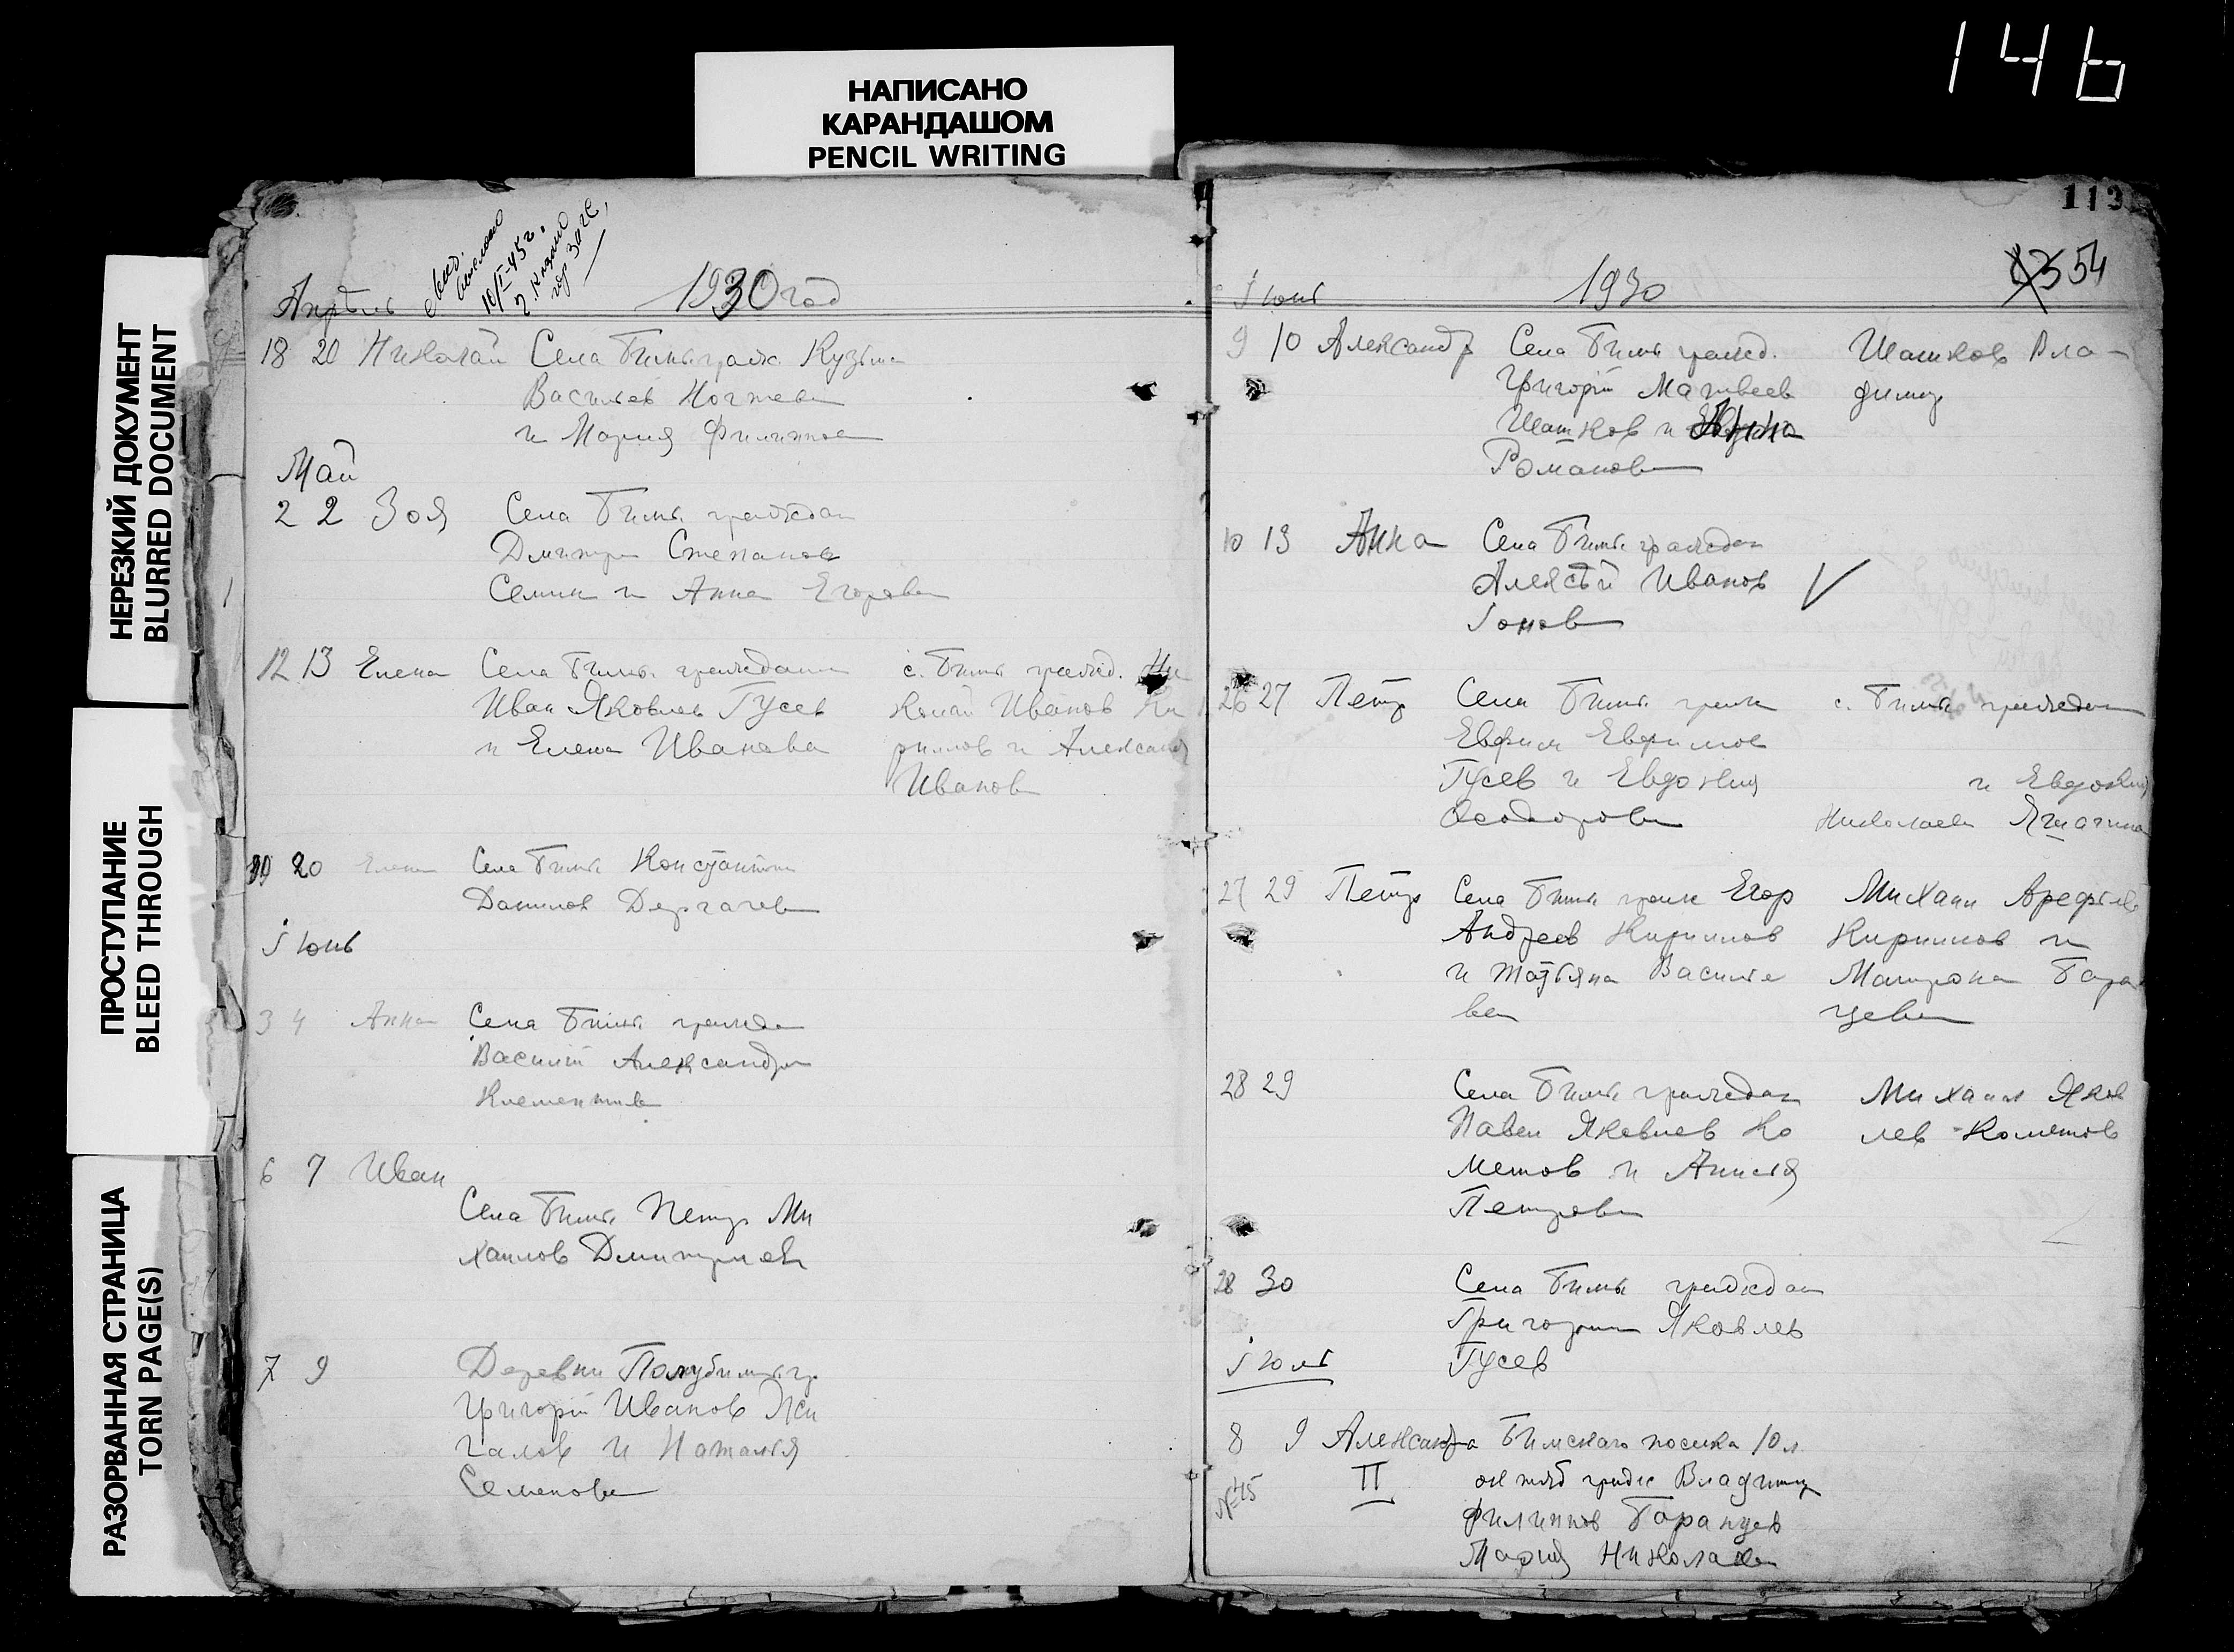 146
НАПИСАНО
КАРАНДАШОМ
PENCIL WRITING
НЕРЕЗКИЙ ДОКУМЕНТ
BLURRED DOCUMENT
ПРОСТУПАНИЕ
BLEED THROUGH
РАЗОРВАННАЯ СТРАНИЦА
TORN PAGE(S)
Апрѣль 1930 год
18 20 Николай Села Бимы гражд. Кузьма
Васильев
и Мария Филиппова
Май
2 2 Зоя Села Бимы граждан
Дмитрий Степанов
Семин и Анна Егорова
12 13 Елена Села Бимы граждан
Иван Яковлев Гусев
и Елена Иванова
с. Бимы гражд. Ни
колай Иванов Ки
рилов и Александ
Иванов
20 Елена Села Бимы Константин
Данилов Дергачев
Iюнь
3 4 Анна Села Бимы граждан
Василий Александров
Клементьев
6 7 Иван
Села Бимы Петр Ми
хаилов Дмитриев
7 9 Деревни Полубимы гр
Григорій Иванов Жи
галов и Наталья
Семенова
113
54
Iюнь 1930
9 10 Александр Села Бимы гражд.
Григорій Матвеев
Шашков и Анна
Романова
Шашков Вла-
димир
10 13 Анна Села Бимы граждан
Алексѣй Иванов
Iонов
26 27 Петр Села Бимы гражд
Евфим Евфимов
Гусев и Евдокия
Феодорова
с. Бимы граждан
и Евдокия
Николаев
27 29 Петр Села Бимы гражд Егор
Андреев Кирилов
и Татьяна Василье
ва
Михаил Арефьев
Кирилов и
Матрона Бара
нцева
28 29 Села Бимы граждан
Павел Яковлев Ко
метов и Анисья
Петрова
Михаил Яков
лев Кометов
28 30 Села Бимы граждан
Григорий Яковлев
Гусев
Iюль
8 9 Александра Бимскаго поселка 10 л.
II
№45
гражд Владимир
Филиппов Баранцев
Мария Николаева